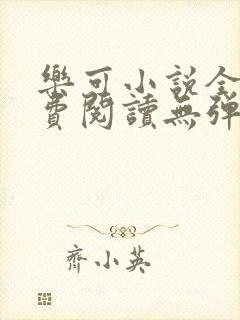 樂可小說全
費閱讀無彈
齊小英